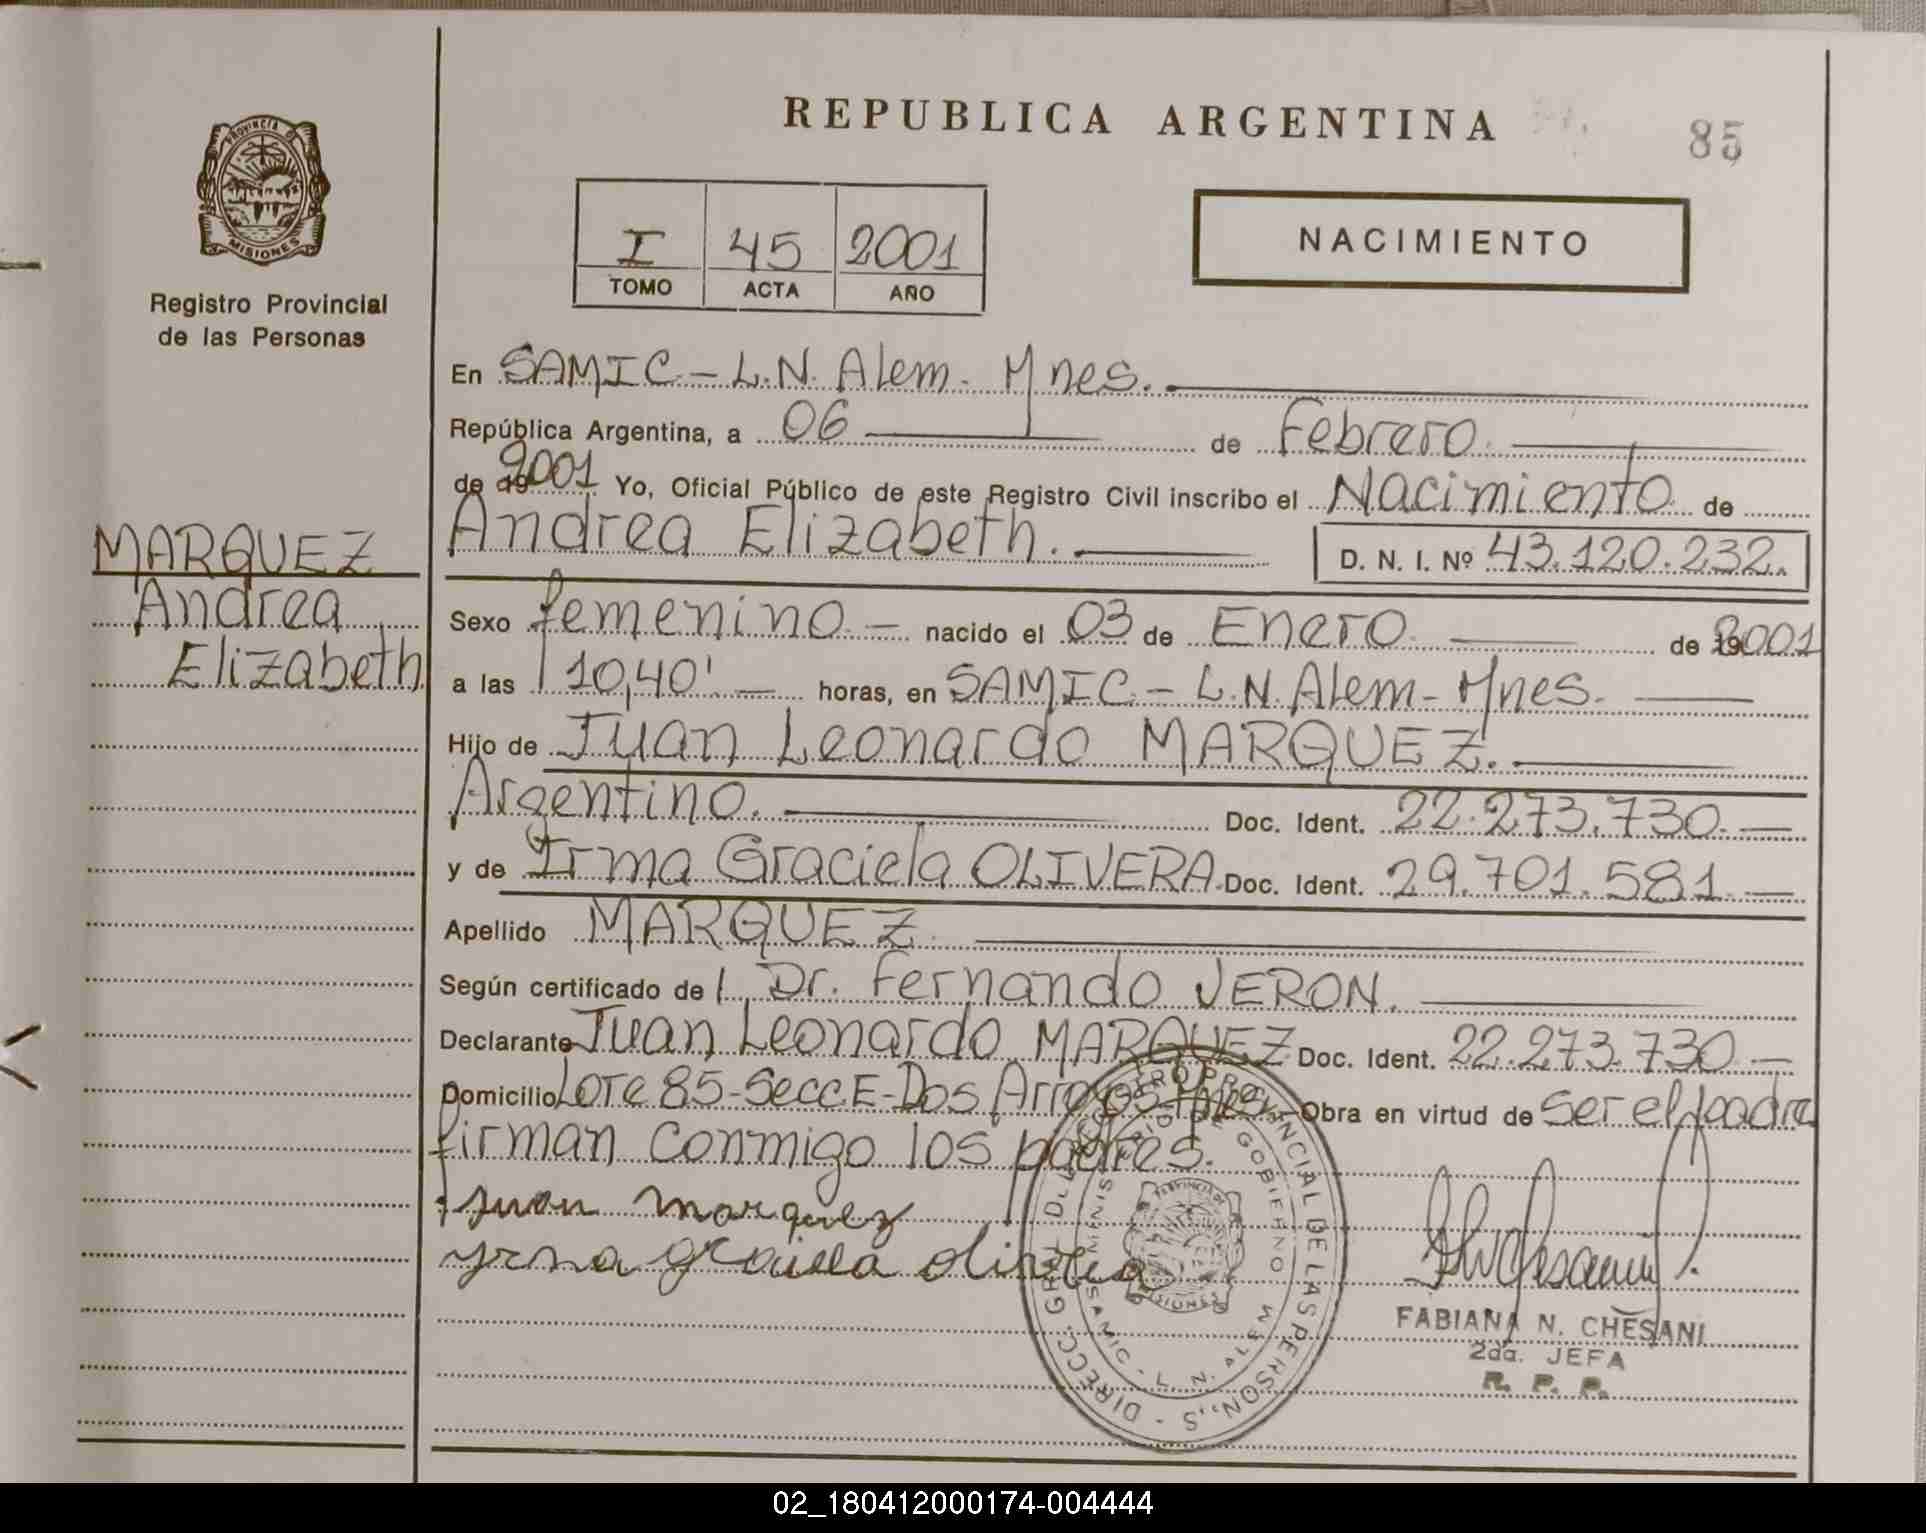 REPUBLICA ARGENTINA
85
PROVINCIA DE
MISIONES
Registro Provincial
de las Personas
I 45 2001
TOMO ACTA AÑO
NACIMIENTO
En SAMIC - L.N. Alem - Mnes.
República Argentina, a 06 de Febrero
de 19 2001 Yo, Oficial Público de este Registro Civil inscribo el Nacimiento de
Andrea Elizabeth. D. N. I. Nº 43.120.232.
MARQUEZ
Andrea
Elizabeth
Sexo femenino - nacido el 03 de Enero de 19 2001
a las 10,40' - horas, en SAMIC - L.N. Alem - Mnes.
Hijo de Juan Leonardo MARQUEZ.
Argentino. Doc. Ident. 22.273.730.-
y de Irma Graciela OLIVERA. Doc. Ident. 29.701.581.-
Apellido MARQUEZ
Según certificado de Dr. Fernando VERON.
Declarante Juan Leonardo MARQUEZ Doc. Ident. 22.273.730.-
Domicilio Lote 85-Secc E-Dos Arroyos-Mnes.- Obra en virtud de Ser el padre
firman conmigo los padres.
juan marquez
yrna graciela olivera
DIRECC. GRAL. DEL REGISTRO PROVINCIAL DE LAS PERSONAS
GOBIERNO
SAMIC - L. N. ALEM
MISIONES
FABIANA N. CHESANI
2da. JEFA
R. P. P.
02_180412000174-004444